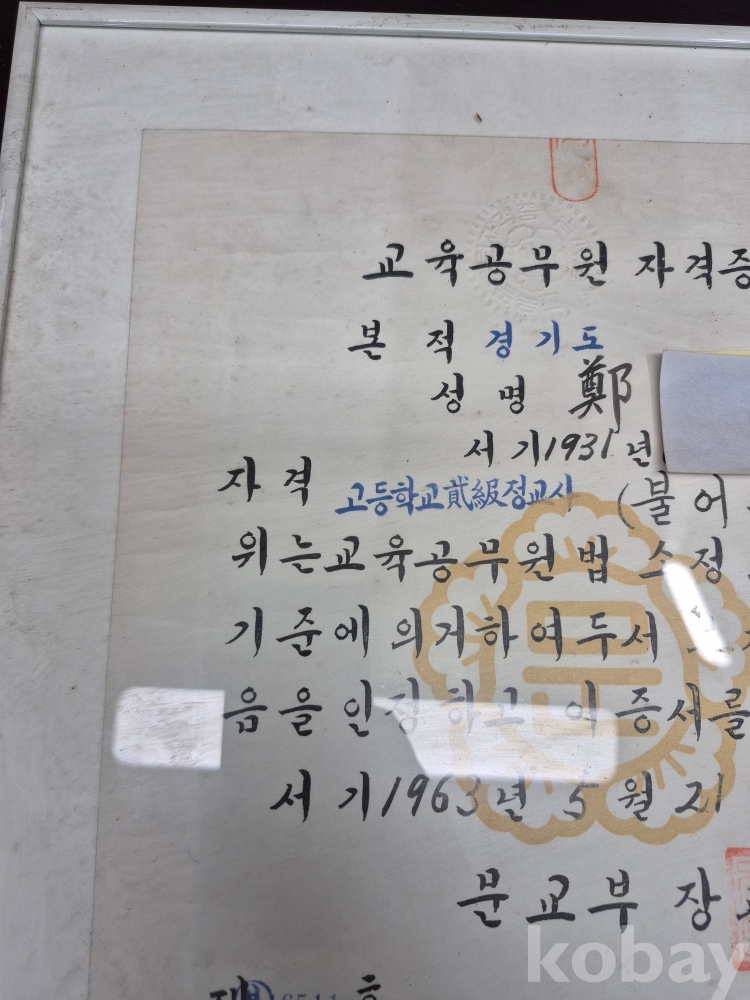 교육공무원 자격증
본 적 경기도
성 명 鄭
서기1931년
자격 고등학교貳級정교사 (불어
위는교육공무원법 소정
기준에 의거하여두서
음을 인정하고 이 증서를
서기1963년 5월 21
문교부 장
제 호
kobay